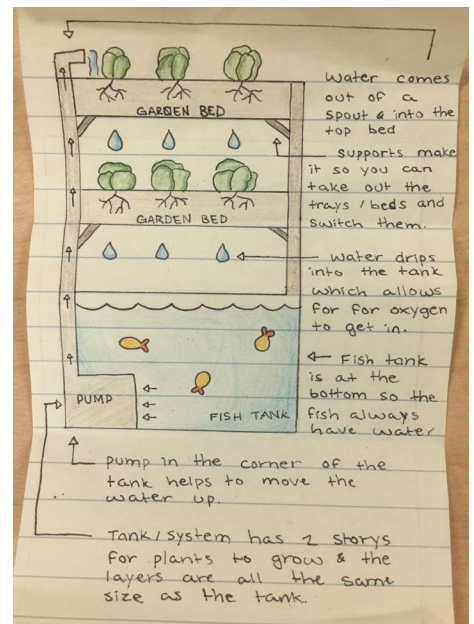 Water comes
out of a
spout & into the
top bed
GARDEN BED
supports make
it so you can
take out the
trays / beds and
switch them.
GARDEN BED
water drips
into the tank
which allows
for for oxygen
to get in.
Fish tank
is at the
bottom so the
fish always
have water
PUMP
FISH TANK
pump in the corner of the
tank helps to move the
water up.
Tank/system has 2 storys
for plants to grow & the
layers are all the same
size as the tank.